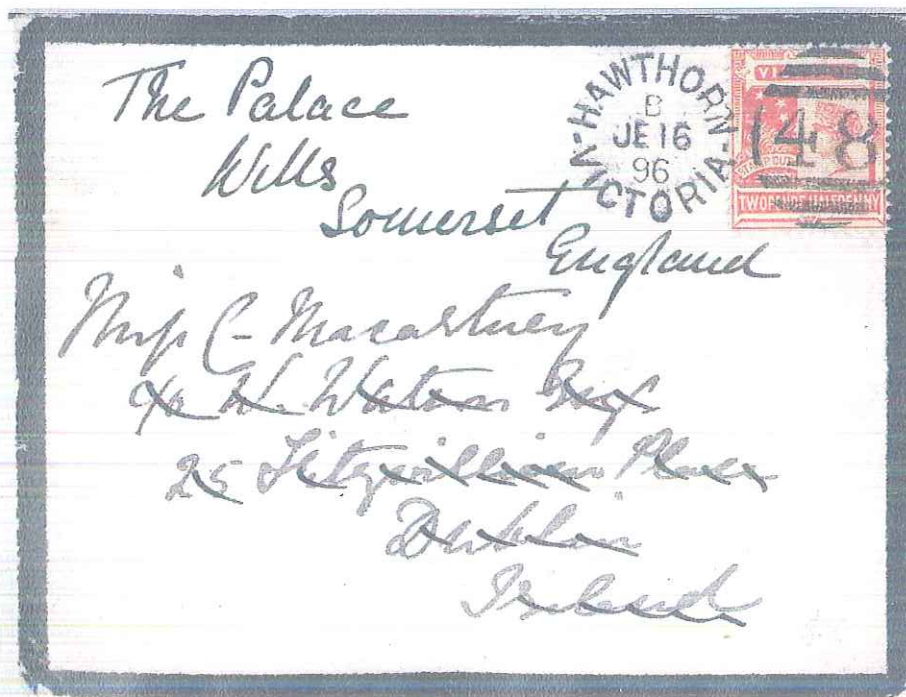 The Palace
Wells
Somerset
England
HAWTHORN
B
JE 16
96
VICTORIA
VI
STAMP DUTY
48
TWOPENCE HALFPENNY
Miss C- Macartney
c/o W. Watson Esq
25 Fitzwilliam Place
Dublin
Ireland